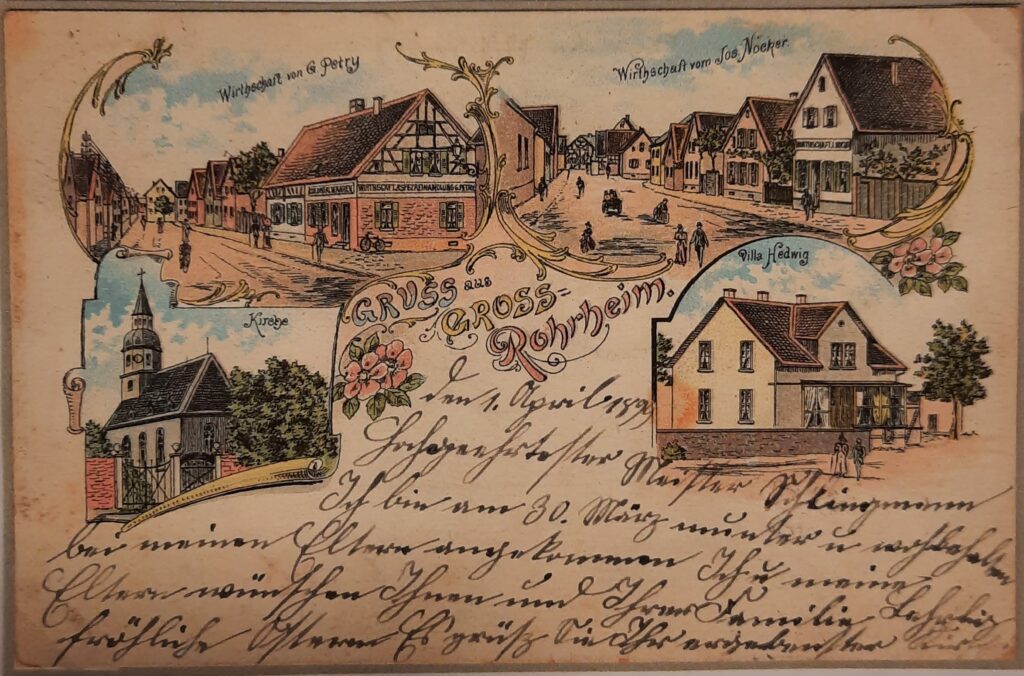 Wirthschaft von G. Petry
Wirthschaft vom Jos. Nöcker.
WIRTHSCHAFT & SPEZEREIHANDLUNG G. PETRY
Kirche
Villa Hedwig
GRUSS aus
GROSS=
Rohrheim.
den 1. April 1899
Hochgeehrtester Meister Schlingmann
Ich bin am 30. März munter u wohlbehalten
bei meinen Eltern angekommen Ich u meine
Eltern wünschen Ihnen und Ihrer Familie
fröhliche Ostern Es grüsz Sie Ihr ergebenster